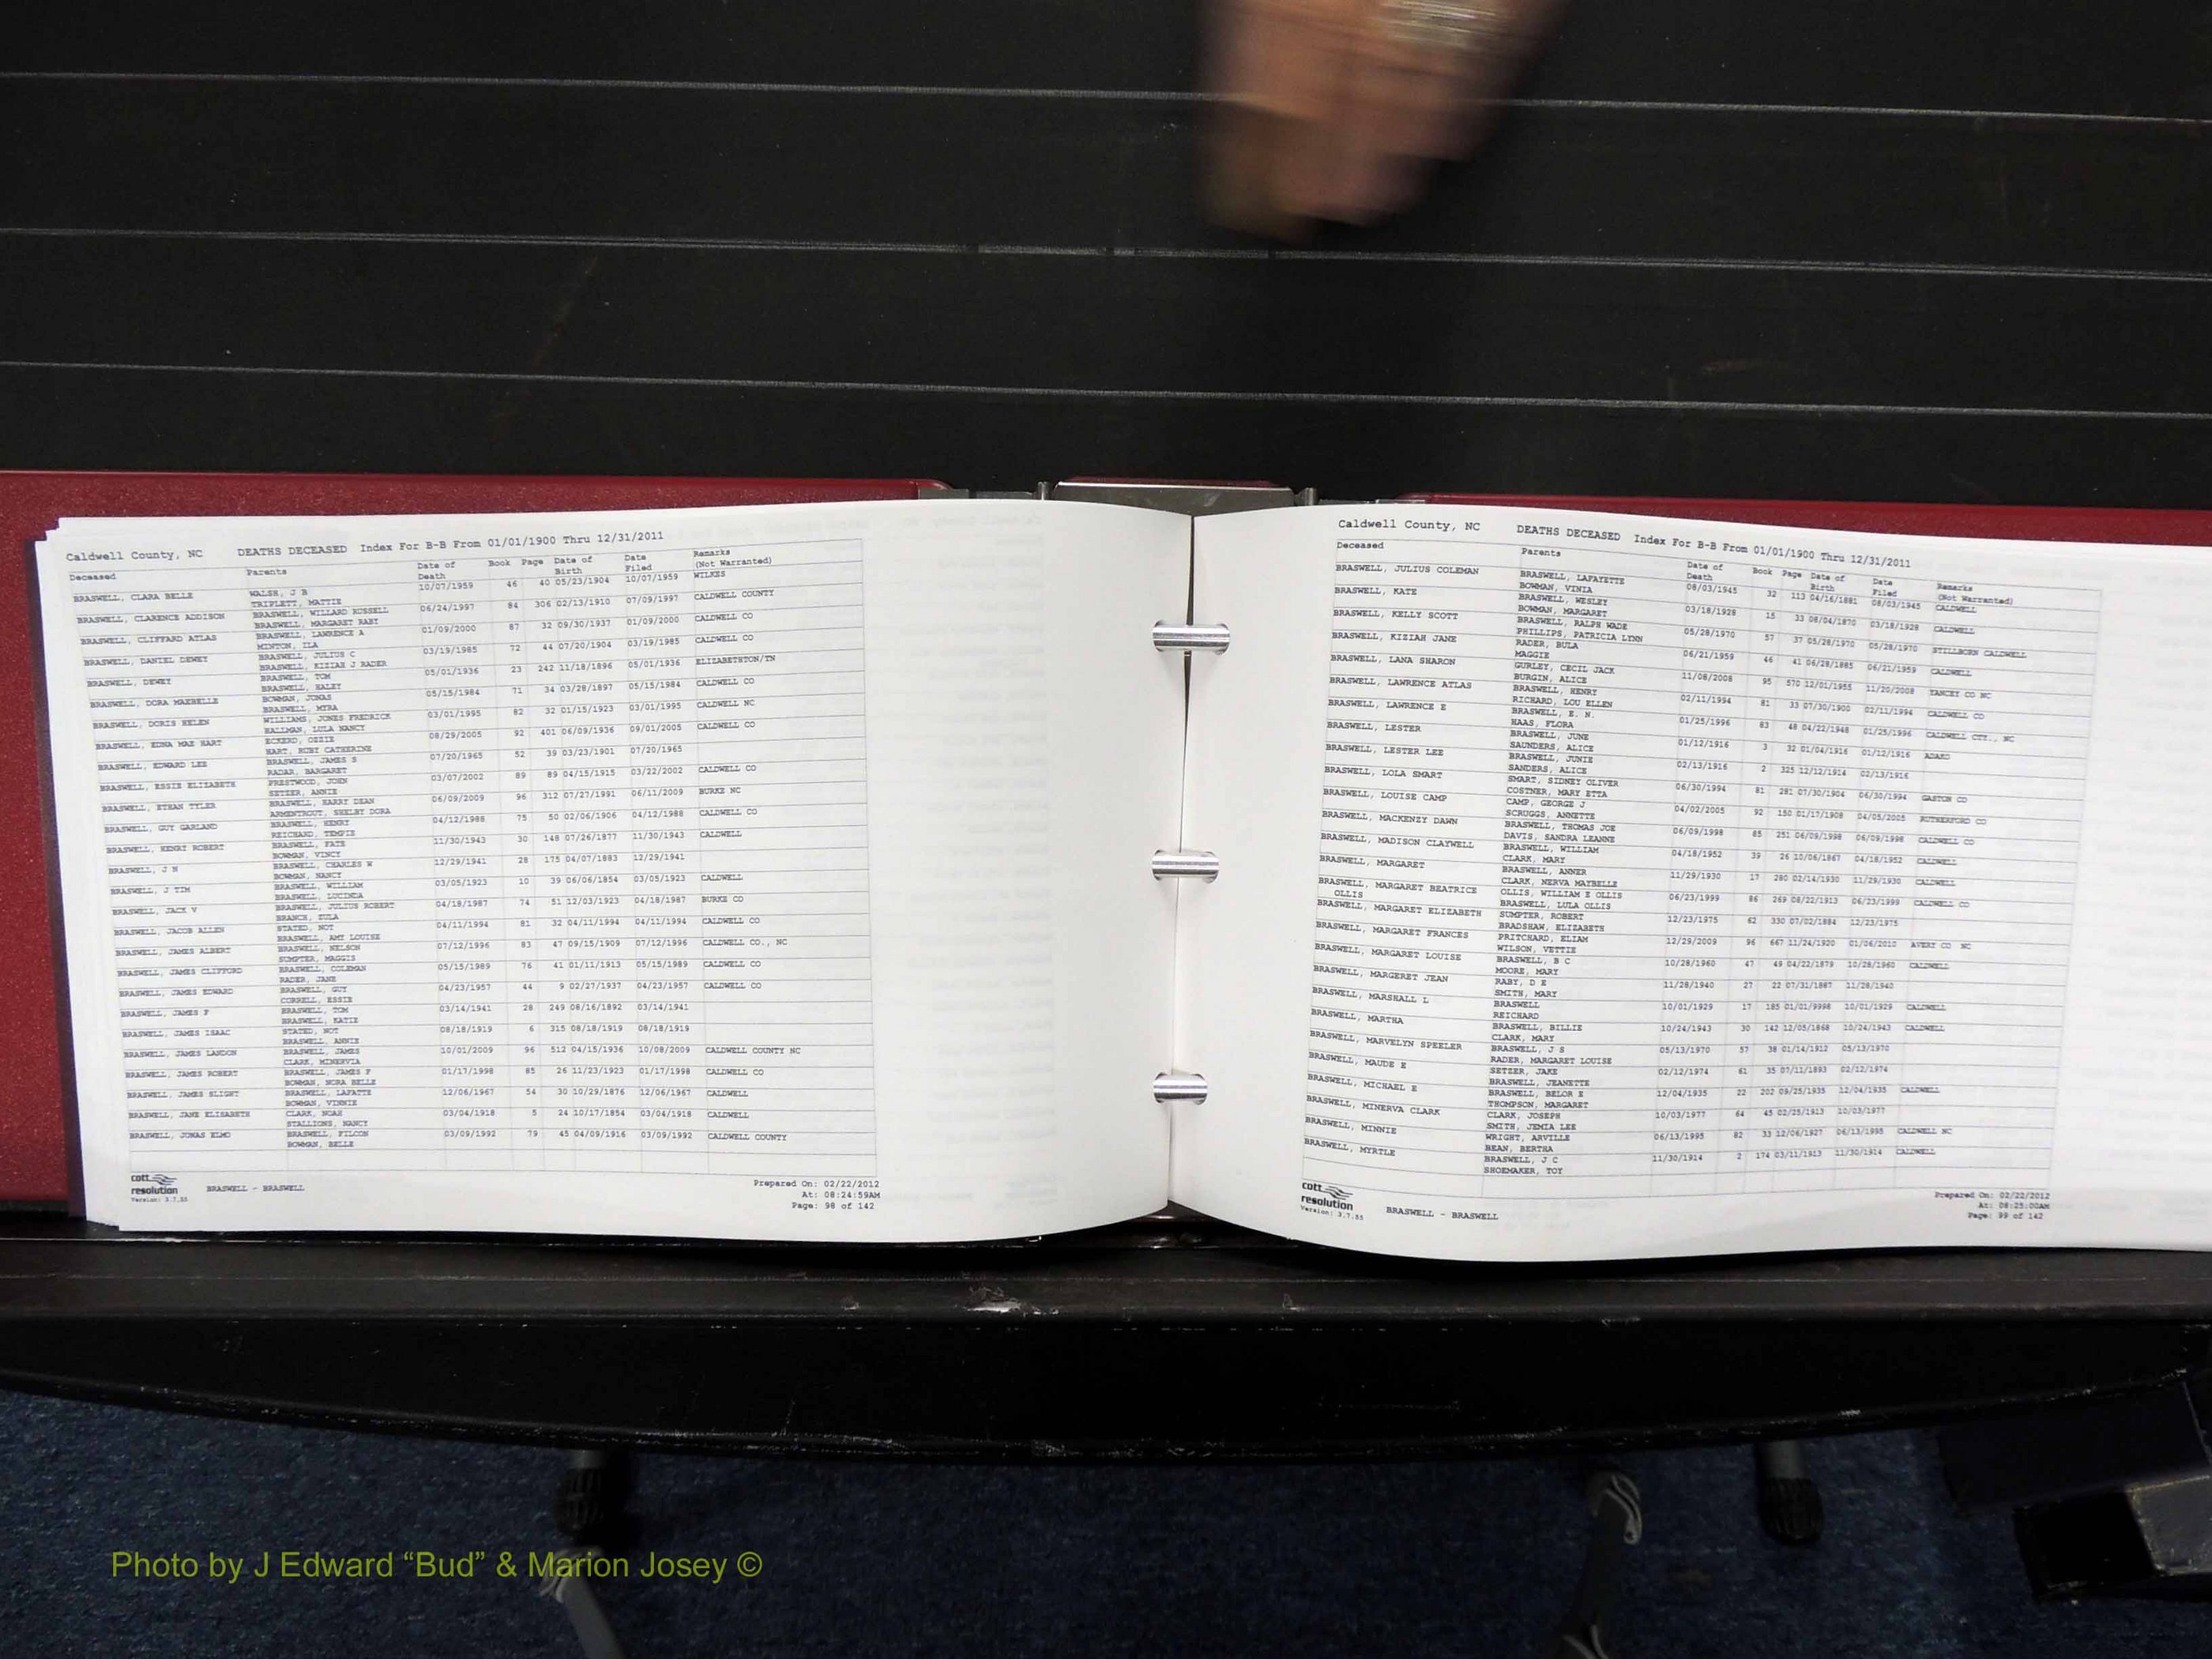 Caldwell County, NC DEATHS DECEASED Index For B-B From 01/01/1900 Thru 12/31/2011
Deceased Parents Date of Death Book Page Date of Birth Date Filed Remarks (Not Warranted)
BRASWELL, CLARA BELLE WALSH, J B 10/07/1959 46 40 05/23/1904 10/07/1959 WILKES
TRIPLETT, MATTIE
BRASWELL, CLARENCE ADDISON BRASWELL, WILLARD RUSSELL 06/24/1997 84 306 02/13/1910 07/09/1997 CALDWELL COUNTY
BRASWELL, MARGARET RABY
BRASWELL, CLIFFARD ATLAS BRASWELL, LAWRENCE A 01/09/2000 87 32 09/30/1937 01/09/2000 CALDWELL CO
MINTON, ILA
BRASWELL, DANIEL DEWEY BRASWELL, JULIUS C 03/19/1985 72 44 07/20/1904 03/19/1985 CALDWELL CO
BRASWELL, KIZIAH J RADER
BRASWELL, DEWEY BRASWELL, TOM 05/01/1936 23 242 11/18/1896 05/01/1936 ELIZABETHTON/TN
BRASWELL, HALEY
BRASWELL, DORA MAEBELLE BOWMAN, JONAS 05/15/1984 71 34 03/28/1897 05/15/1984 CALDWELL CO
BRASWELL, MYRA
BRASWELL, DORIS HELEN WILLIAMS, JONES FREDRICK 03/01/1995 82 32 01/15/1923 03/01/1995 CALDWELL NC
HALLMAN, LULA NANCY
BRASWELL, EDNA MAE HART ECKERD, OZZIE 08/29/2005 92 401 06/09/1936 09/01/2005 CALDWELL CO
HART, RUBY CATHERINE
BRASWELL, EDWARD LEE BRASWELL, JAMES S 07/20/1965 52 39 03/23/1901 07/20/1965
RADAR, BARGARET
BRASWELL, ESSIE ELIZABETH PRESTWOOD, JOHN 03/07/2002 89 89 04/15/1915 03/22/2002 CALDWELL CO
SETZER, ANNIE
BRASWELL, ETHAN TYLER BRASWELL, HARRY DEAN 06/09/2009 96 312 07/27/1991 06/11/2009 BURKE NC
ARMENTROUT, SHELBY DORA
BRASWELL, GUY GARLAND BRASWELL, HENRY 04/12/1988 75 50 02/06/1906 04/12/1988 CALDWELL CO
REICHARD, TEMPIE
BRASWELL, HENRY ROBERT BRASWELL, FATE 11/30/1943 30 148 07/26/1877 11/30/1943 CALDWELL
BOWMAN, VINCY
BRASWELL, J N BRASWELL, CHARLES W 12/29/1941 28 175 04/07/1883 12/29/1941
BOWMAN, NANCY
BRASWELL, J TIM BRASWELL, WILLIAM 03/05/1923 10 39 06/06/1854 03/05/1923 CALDWELL
BRASWELL, LUCINDA
BRASWELL, JACK V BRASWELL, JULIUS ROBERT 04/18/1987 74 51 12/03/1923 04/18/1987 BURKE CO
BRANCH, ZULA
BRASWELL, JACOB ALLEN STATED, NOT 04/11/1994 81 32 04/11/1994 04/11/1994 CALDWELL CO
BRASWELL, AMY LOUISE
BRASWELL, JAMES ALBERT BRASWELL, NELSON 07/12/1996 83 47 09/15/1909 07/12/1996 CALDWELL CO., NC
SUMPTER, MAGGIS
BRASWELL, JAMES CLIFFORD BRASWELL, COLEMAN 05/15/1989 76 41 01/11/1913 05/15/1989 CALDWELL CO
RADER, JANE
BRASWELL, JAMES EDWARD BRASWELL, GUY 04/23/1957 44 9 02/27/1937 04/23/1957 CALDWELL CO
CORRELL, ESSIE
BRASWELL, JAMES F BRASWELL, TOM 03/14/1941 28 249 08/16/1892 03/14/1941
BRASWELL, KATIE
BRASWELL, JAMES ISAAC STATED, NOT 08/18/1919 6 315 08/18/1919 08/18/1919
BRASWELL, ANNIE
BRASWELL, JAMES LANDON BRASWELL, JAMES 10/01/2009 96 512 04/15/1936 10/08/2009 CALDWELL COUNTY NC
CLARK, MINERVIA
BRASWELL, JAMES ROBERT BRASWELL, JAMES F 01/17/1998 85 26 11/23/1923 01/17/1998 CALDWELL CO
BOWMAN, NORA BELLE
BRASWELL, JAMES SLIGHT BRASWELL, LAFATTE 12/06/1967 54 30 10/29/1876 12/06/1967 CALDWELL
BOWMAN, VINNIE
BRASWELL, JANE ELIZABETH CLARK, NOAH 03/04/1918 5 24 10/17/1854 03/04/1918 CALDWELL
STALLIONS, NANCY
BRASWELL, JONAS ELMO BRASWELL, FILCON 03/09/1992 79 45 04/09/1916 03/09/1992 CALDWELL COUNTY
BOWMAN, BELLE
cott
resolution
Version: 3.7.55
BRASWELL - BRASWELL
Prepared On: 02/22/2012
At: 08:24:59AM
Page: 98 of 142
Caldwell County, NC DEATHS DECEASED Index For B-B From 01/01/1900 Thru 12/31/2011
Deceased Parents Date of Death Book Page Date of Birth Date Filed Remarks (Not Warranted)
BRASWELL, JULIUS COLEMAN BRASWELL, LAFAYETTE 08/03/1945 32 113 04/16/1881 08/03/1945 CALDWELL
BOWMAN, VINIA
BRASWELL, KATE BRASWELL, WESLEY 03/18/1928 15 33 08/04/1870 03/18/1928 CALDWELL
BOWMAN, MARGARET
BRASWELL, KELLY SCOTT BRASWELL, RALPH WADE 05/28/1970 57 37 05/28/1970 05/28/1970 STILLBORN CALDWELL
PHILLIPS, PATRICIA LYNN
BRASWELL, KIZIAH JANE RADER, BULA 06/21/1959 46 41 06/28/1885 06/21/1959 CALDWELL
MAGGIE
BRASWELL, LANA SHARON GURLEY, CECIL JACK 11/08/2008 95 570 12/01/1955 11/20/2008 YANCEY CO NC
BURGIN, ALICE
BRASWELL, LAWRENCE ATLAS BRASWELL, HENRY 02/11/1994 81 33 07/30/1900 02/11/1994 CALDWELL CO
RICHARD, LOU ELLEN
BRASWELL, LAWRENCE E BRASWELL, E. N. 01/25/1996 83 48 04/22/1948 01/25/1996 CALDWELL CTY., NC
HAAS, FLORA
BRASWELL, LESTER BRASWELL, JUNE 01/12/1916 3 32 01/04/1916 01/12/1916 ADAKO
SAUNDERS, ALICE
BRASWELL, LESTER LEE BRASWELL, JUNIE 02/13/1916 2 325 12/12/1914 02/13/1916
SANDERS, ALICE
BRASWELL, LOLA SMART SMART, SIDNEY OLIVER 06/30/1994 81 281 07/30/1904 06/30/1994 GASTON CO
COSTNER, MARY ETTA
BRASWELL, LOUISE CAMP CAMP, GEORGE J 04/02/2005 92 150 01/17/1908 04/05/2005 RUTHERFORD CO
SCRUGGS, ANNETTE
BRASWELL, MACKENZY DAWN BRASWELL, THOMAS JOE 06/09/1998 85 251 06/09/1998 06/09/1998 CALDWELL CO
DAVIS, SANDRA LEANNE
BRASWELL, MADISON CLAYWELL BRASWELL, WILLIAM 04/18/1952 39 26 10/06/1867 04/18/1952 CALDWELL
CLARK, MARY
BRASWELL, MARGARET BRASWELL, ANNER 11/29/1930 17 280 02/14/1930 11/29/1930 CALDWELL
CLARK, NERVA MAYBELLE
BRASWELL, MARGARET BEATRICE OLLIS, WILLIAM E OLLIS 06/23/1999 86 269 08/22/1913 06/23/1999 CALDWELL CO
OLLIS BRASWELL, LULA OLLIS
BRASWELL, MARGARET ELIZABETH SUMPTER, ROBERT 12/23/1975 62 330 07/02/1884 12/23/1975
BRADSHAW, ELIZABETH
BRASWELL, MARGARET FRANCES PRITCHARD, ELIAM 12/29/2009 96 667 11/24/1920 01/06/2010 AVERY CO NC
WILSON, VETTIE
BRASWELL, MARGARET LOUISE BRASWELL, B C 10/28/1960 47 49 04/22/1879 10/28/1960 CALDWELL
MOORE, MARY
BRASWELL, MARGERET JEAN RABY, D E 11/28/1940 27 22 07/31/1887 11/28/1940
SMITH, MARY
BRASWELL, MARSHALL L BRASWELL 10/01/1929 17 185 01/01/9998 10/01/1929 CALDWELL
REICHARD
BRASWELL, MARTHA BRASWELL, BILLIE 10/24/1943 30 142 12/05/1868 10/24/1943 CALDWELL
CLARK, MARY
BRASWELL, MARVELYN SPEELER BRASWELL, J S 05/13/1970 57 38 01/14/1912 05/13/1970
RADER, MARGARET LOUISE
BRASWELL, MAUDE E SETZER, JAKE 02/12/1974 61 35 07/11/1893 02/12/1974
BRASWELL, JEANETTE
BRASWELL, MICHAEL E BRASWELL, BELOR E 12/04/1935 22 202 09/25/1935 12/04/1935 CALDWELL
THOMPSON, MARGARET
BRASWELL, MINERVA CLARK CLARK, JOSEPH 10/03/1977 64 45 02/25/1913 10/03/1977
SMITH, JEMIA LEE
BRASWELL, MINNIE WRIGHT, ARVILLE 06/13/1995 82 33 12/06/1927 06/13/1995 CALDWELL NC
BEAN, BERTHA
BRASWELL, MYRTLE BRASWELL, J C 11/30/1914 2 174 03/11/1913 11/30/1914 CALDWELL
SHOEMAKER, TOY
cott
resolution
Version: 3.7.55
BRASWELL - BRASWELL
Prepared On: 02/22/2012
At: 08:25:00AM
Page: 99 of 142
Photo by J Edward “Bud” & Marion Josey ©